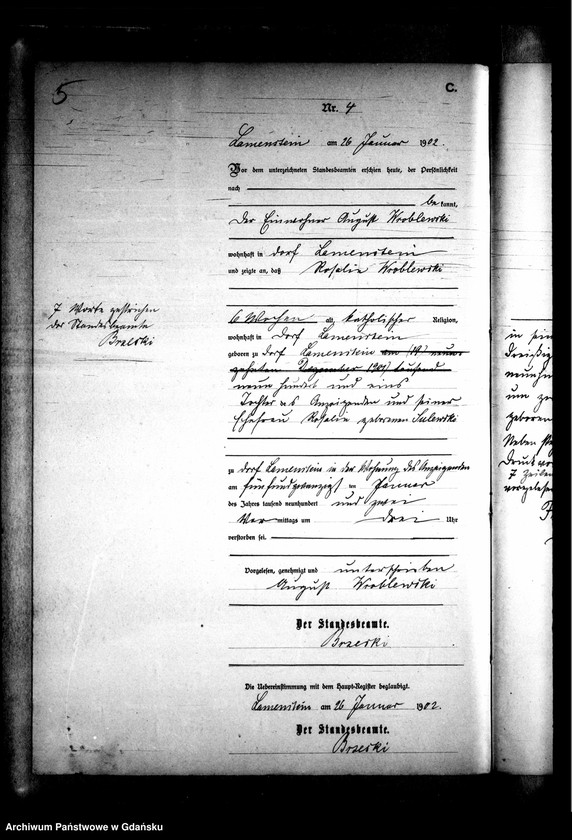 5
C.
Nr. 4
Lamenstein am 26 Januar 1902.
Vor dem unterzeichneten Standesbeamten erschien heute, der Persönlichkeit
nach
be kannt,
der Einwohner August Wroblewski
wohnhaft in Dorf Lamenstein
und zeigte an, daß Rosalie Wroblewski
7 Worte gestrichen
Der Standesbeamte
Brzeski
6 Wochen alt, katholischer Religion,
wohnhaft in Dorf Lamenstein
geboren zu Dorf Lamenstein am (19) neun-
zehnten Dezember 1901 tausend
neun hundert und eins
Tochter des Anzeigenden und seiner
Ehefrau Rosalie geborenen Sulewski
zu Dorf Lamenstein in der Wohnung des Anzeigenden
am fünfundzwanzigsten Januar
des Jahres tausend neunhundert und zwei
Vor mittags um drei Uhr
verstorben sei.
Vorgelesen, genehmigt und unterschrieben
August Wroblewski
Der Standesbeamte.
Brzeski
Die Uebereinstimmung mit dem Haupt-Register beglaubigt.
Lamenstein am 26 Januar 1902.
Der Standesbeamte.
Brzeski
in sein
dreißig
neunhu
um
geboren
Neben
Druckwo
7 Zeilen
vorgelesen
Archiwum Państwowe w Gdańsku